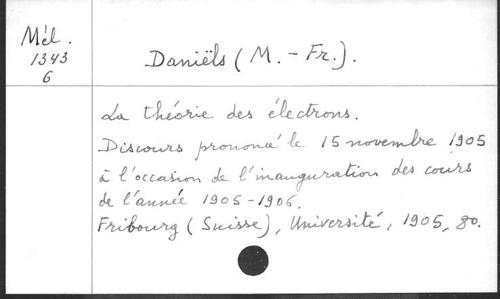 Mél.
1343
6
Daniëls (M.-Fr.).
La théorie des électrons.
Discours prononcé le 15 novembre 1905
à l'occasion de l'inauguration des cours
de l'année 1905-1906.
Fribourg (Suisse), Université, 1905, 8o.